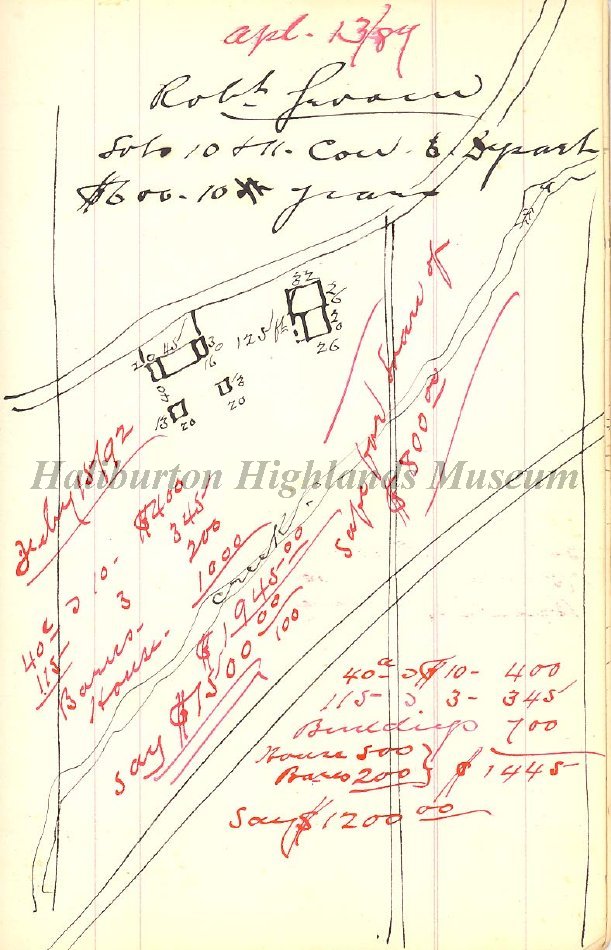 Apl. 13/89
Robt
Lots 10 & 11. Con. 6. Dysart
$600 - 10 years
32
26
20
26
125 ft
20 45 30
16
40
13 20
18
20
Haliburton Highlands Museum
Feby 18/92
40 a @ 10 - $400
115 - @ 3 345
Barns - 200
House - 1000
$1945.00
say $1500 00/100
Creek
safe for loan of
$800 00
40 a @ $10 - 400
115 - @ 3 - 345
Buildings 700
House 500
Barns 200 } $1445
Say $1200 00